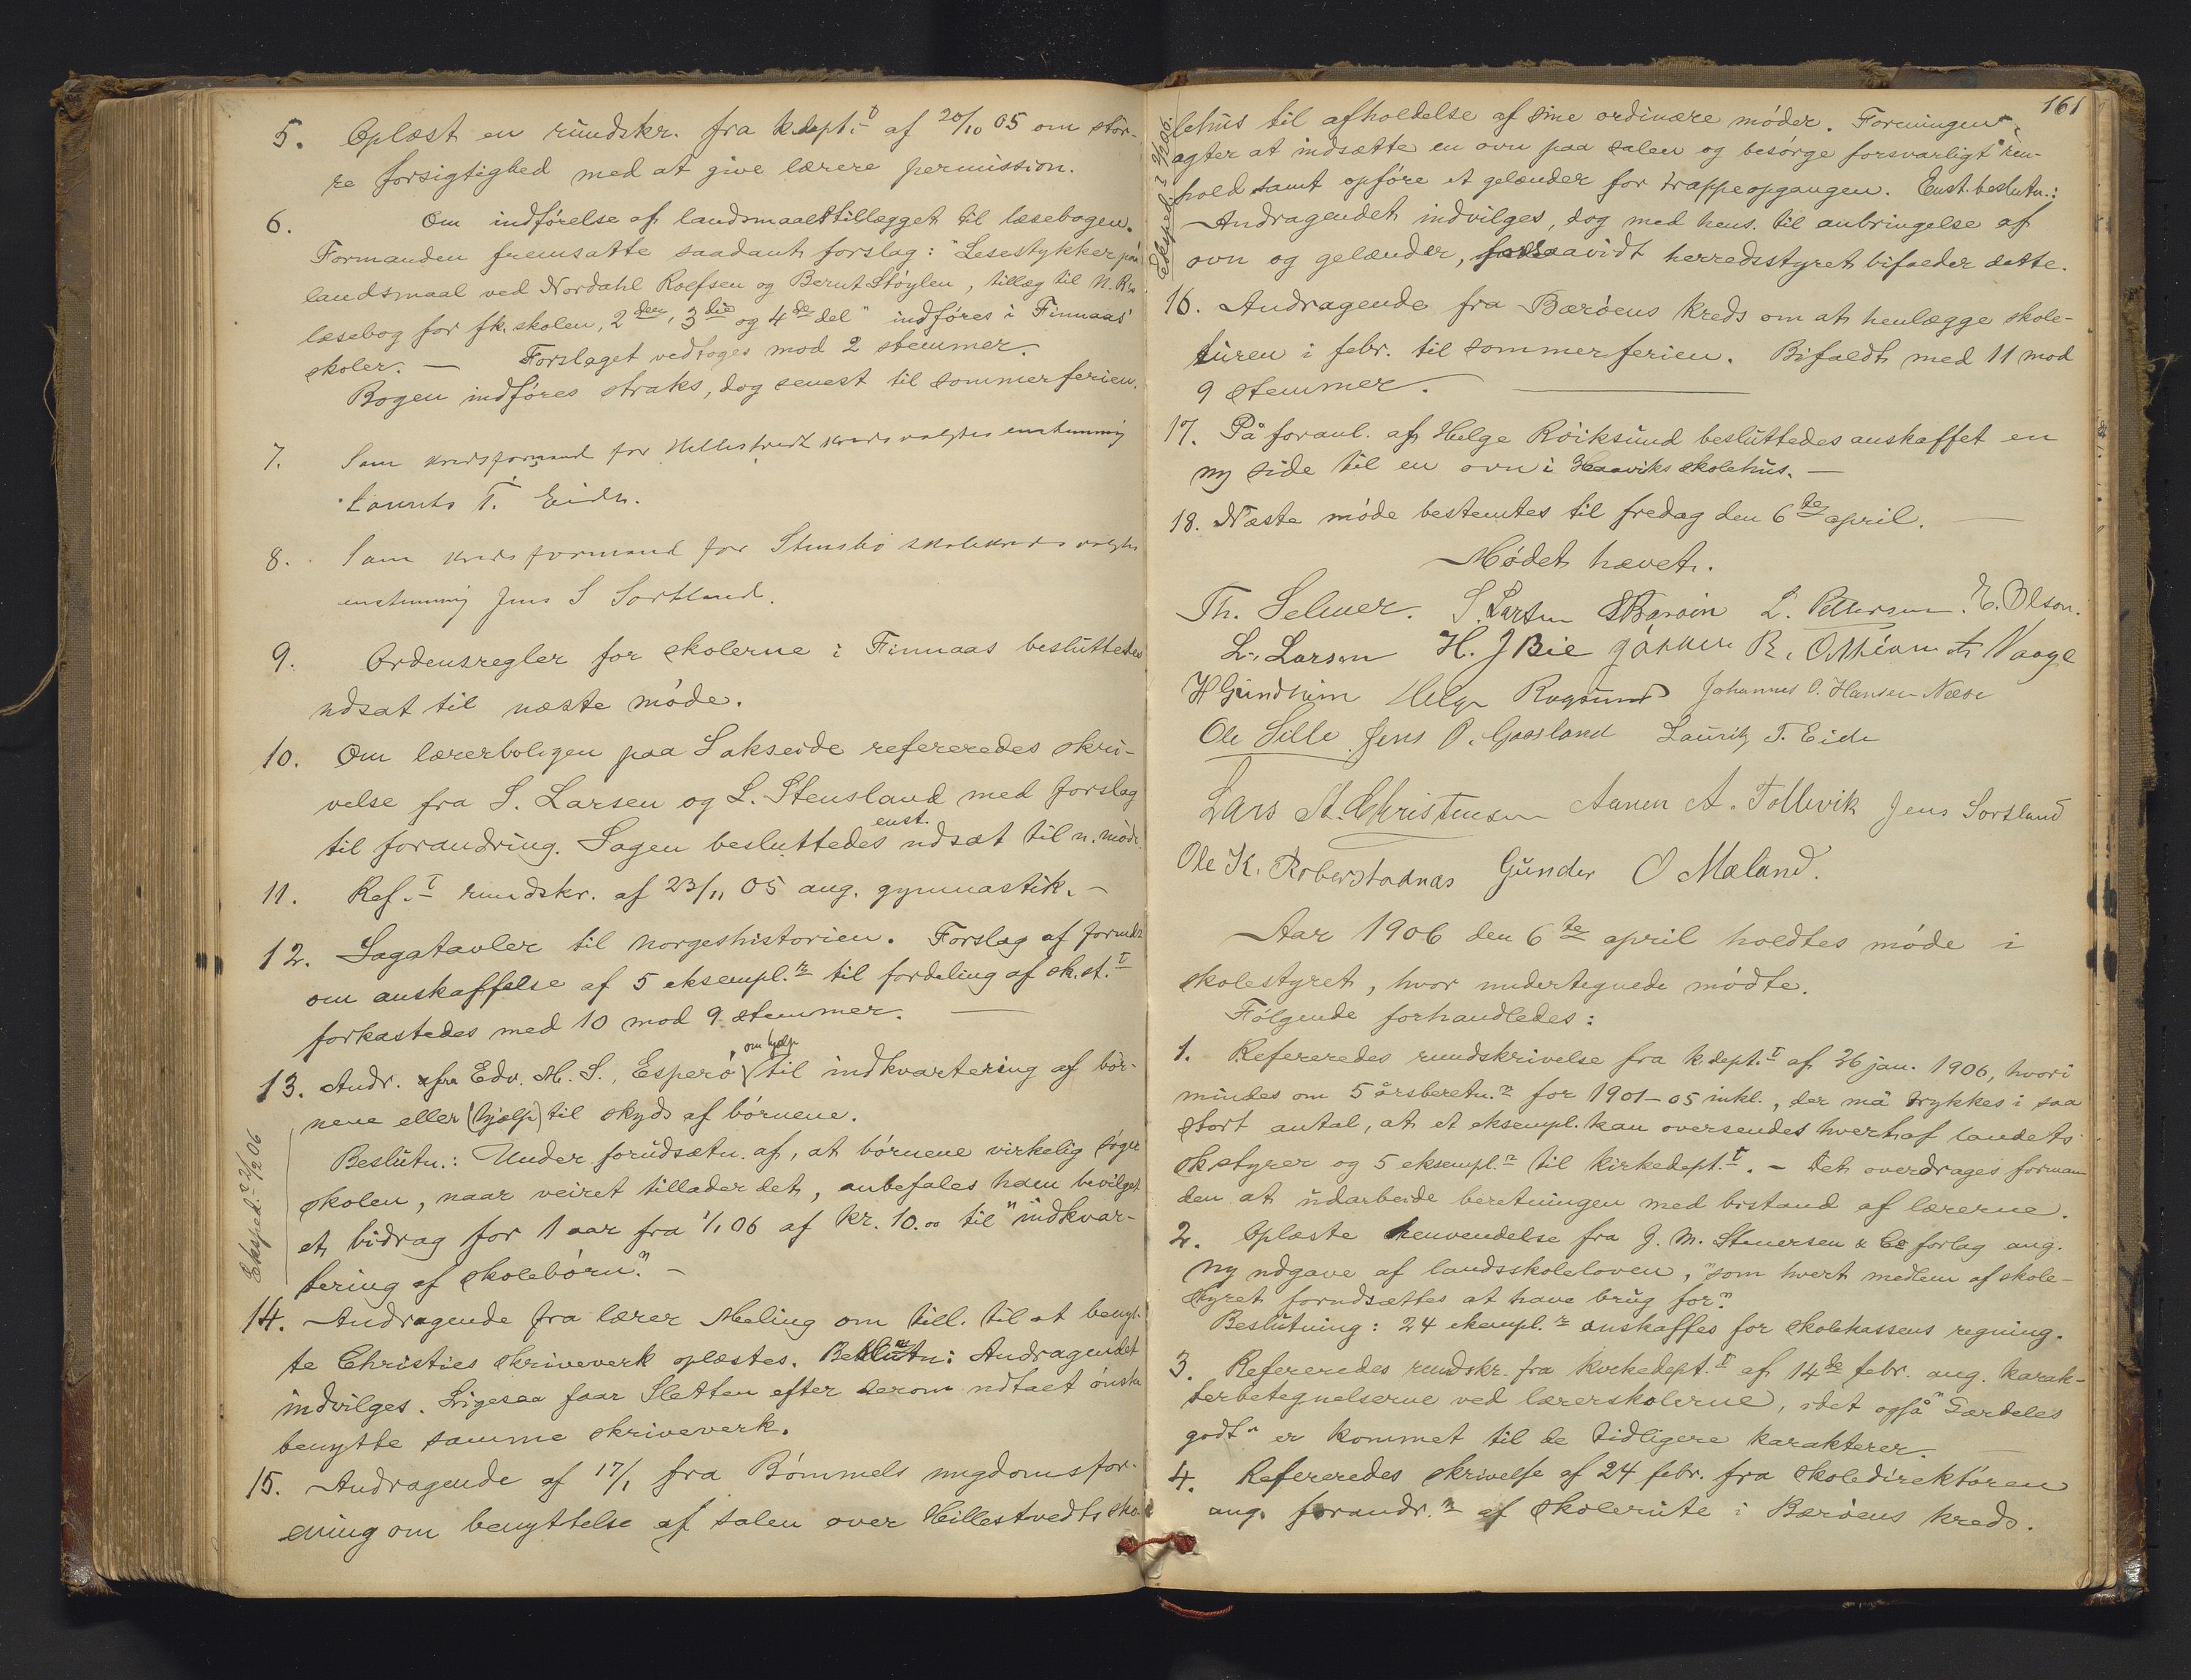 5. Oplæst en rundskr. fra k.dept.t af 20/10 05 om stør-
re forsigtighed med at give lærere permission.
6. Om indførelse af landsmaalstillægget til læsebogen.
Formanden fremsatte saadant forslag: "Lesestykker paa
landsmaal ved Nordahl Rolfsen og Bernt Støylen, tillæg til N. R.s
læsebog for fk.skolen, 2den, 3die og 4de del" indføres i Finnaas'
skoler. — Forslaget vedtoges mod 2 stemmer.
Bogen indføres straks, dog senest til sommerferien.
7. Som kredsformand for Hillestvedt kreds valgtes enstemmig
Laurits T. Eide.
8. Som kredsformand for Stensbø skolekreds valgtes
enstemmig Jens S Sortland.
9. Ordensregler for skolerne i Finnaas besluttedes
udsat til næste møde.
10. Om lærerboligen paa Sakseide refereredes skri-
velse fra S. Larsen og L. Stensland med forslag
til forandring. Sagen besluttedes enst. udsat til n. møde.
11. Ref. t rundskr. af 23/11 05 ang. gymnastik. —
12. Sagatavler til Norgeshistorien. Forslag af formd.
om anskaffelse af 5 eksempl.r til fordeling af sk.st.t
forkastedes med 10 mod 9 stemmer. —
13. Andr. fra Edv. M. S. Esperø, om hjælp til indkvartering af bør-
nene eller (hjælp) til skyds af børnene.
Eksped. 2/2 06
Beslutn.: Under forudsætn. af, at børnene virkelig søger
skolen, naar veiret tillader det, anbefales ham bevilget
et bidrag for 1 aar fra 1/1 06 af kr. 10.00 til "indkvar-
tering af skolebørn." —
14. Andragende fra lærer Meling om till. til at benyt-
te Christies skriveverk oplæstes. Beslutn: Andragendet
indvilges. Ligesaa faar Sletten efter derom udtalt ønske
benytte samme skriveverk.
15. Andragende af 17/1 fra Bømmels ungdomsfor-
ening om benyttelse af salen over Hillestvedts sko-
161
lehus til afholdelse af sine ordinære møder. Foreningen
agter at indsætte en ovn paa salen og besørge forsvarligt ren-
hold samt opføre et gelænder for trappeopgangen. Enst. beslutn.:
Andragendet indvilges, dog med hens. til anbringelse af
ovn og gelænder, forsaavidt herredsstyret bifalder dette.
16. Andragende fra Bærøens kreds om at henlægge skole-
turen i febr. til sommerferien. Bifaldt med 11 mod
9 stemmer.
17. På foranl. af Helge Røiksund besluttedes anskaffet en
ny side til en ovn i Haaviks skolehus. —
18. Næste møde bestemtes til fredag den 6te april. —
Mødet hævet.
Th. Selmer. S. Larsen L. Pettersen. E. Olson.
L. Larsen H. J Bie Vaage
H Gundheim Helge Røgsund Johannes O. Hansen Næse
Ole Lille Jens P. Gaasland Lauritz T. Eide
Lars St. Christensen Aanen A. Tollevik Jens Sortland
Ole K. Robberstadnæs Gunder O Mæland.
Aar 1906 den 6te april holdtes møde i
skolestyret, hvor undertegnede mødte.
Følgende forhandledes:
1. Refereredes rundskrivelse fra k.dept.t af 26 jan. 1906, hvori
mindes om 5 årsberetn.n for 1901–05 inkl., der må trykkes i saa
stort antal, at et eksempl. kan oversendes hvert af landets
sk.styrer og 5 eksempl.r til Kirkedept.t. – Det overdrages forman-
den at udarbeide beretningen med bistand af lærerne.
2. Oplæste henvendelse fra J. M. Stenersen & Co forlag ang.
ny udgave af landsskoleloven, "som hvert medlem af skole-
styret forudsættes at have brug for."
Beslutning: 24 eksempl.r anskaffes for skolekassens regning.
3. Refereredes rundskr. fra kirkedept.t af 14de febr. ang. karak-
terbetegnelserne ved lærerskolerne, idet også "Særdeles
godt" er kommet til de tidligere karakterer. —
4. Refereredes skrivelse af 24 febr. fra skoledirektøren
ang. forandr.n af skolerute i Bærøens kreds.